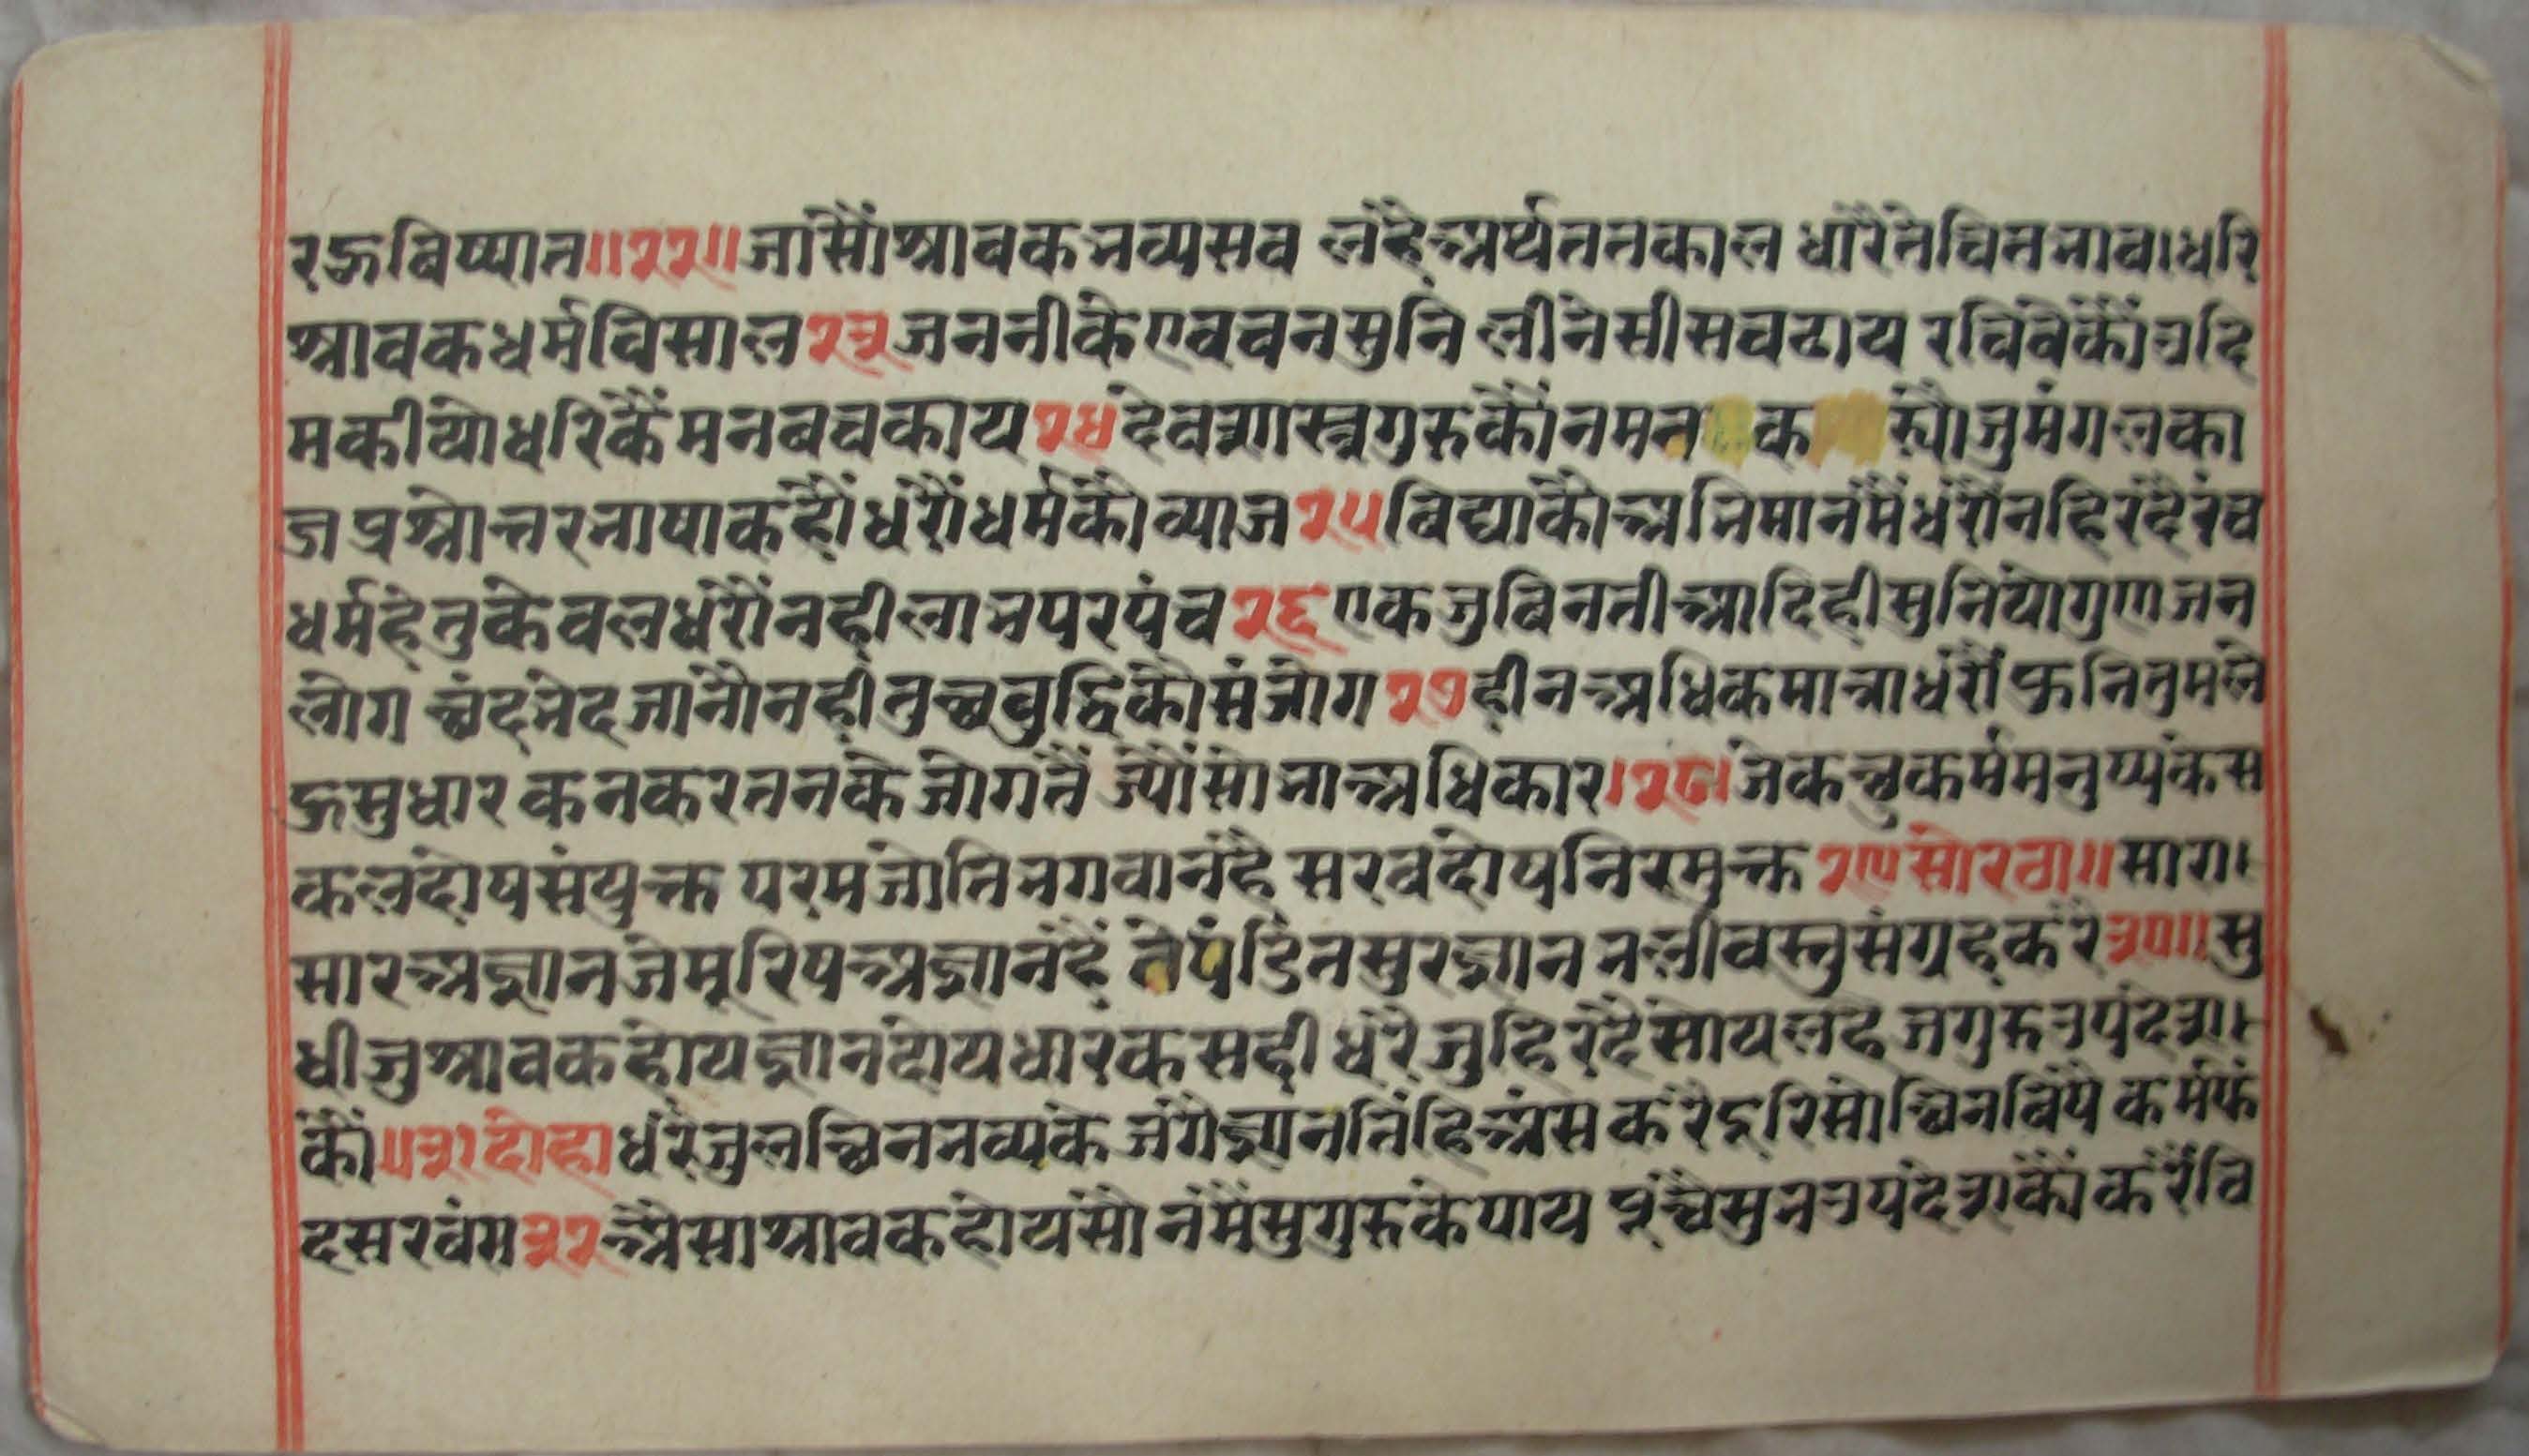 रऊविष्यात॥२२॥जासौंश्रावकभव्यसव लहैअर्थततकाल धारैतेचितभावधरि
श्रावकधर्मविसाल२३जननीकेएवचनसुनि लीनेसीसचढाय रचिवेकौंउदि
मकीयोधरिकैंमनबचकाय२४देवशास्त्रगुरुकौंनमत क स्यौजुमंगलका
ज प्रश्नोत्तरभाषाकहौंधरौंधर्मकौव्याज२५विद्याकौअभिमानमैंधरौंनहिरदैरंच
धर्महेतुकेवलधरौंनहीलाभपरपंच२६एकजुबिनतीआदिहीसुनियोगुणजन
लोग छंदभेदजानौनहीतुछबुद्धिकौसंजोग२७हीनअधिकमात्राधरौंफनितुमले
ऊसुधार कनकरतनकेजोगतैं ज्यौंसोभाअधिकार।२८।जेकछुकर्ममनुष्यकेस
कलदोषसंयुक्त परमजोतिभगवानहै सरवदोषनिरमुक्त २९सोरठा॥सारा।
सारअज्ञानजेमूरिषअज्ञानहैं तेपंडितसुरज्ञान भलीवस्तुसंग्रहकरे३०॥सु
धीजुश्रावकहोयज्ञानदोयधारकसही धरेजुहिरदैसोयलहैजगुरुउपदेशा।
कौं॥३१दोहाधरैजुलछिनभव्यके जगेज्ञानतिहिअंस करैदूरिसोछिनविषै कर्मफं
दसरवंस३२अैसाश्रावकहोयसो नमैसुगुरुकेपाय पूछैसुभउपदेशकौं करैंवि